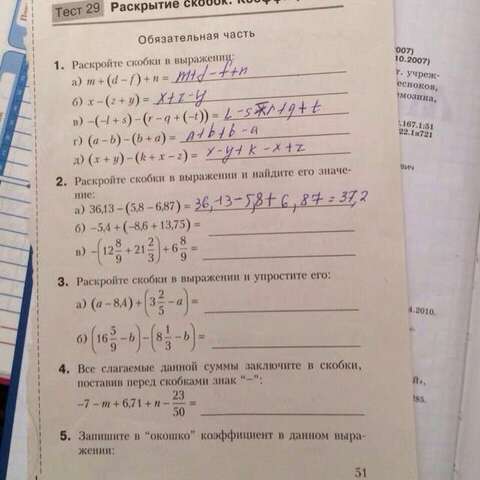 Тест 29 Раскрытие скобок.
Обязательная часть
1. Раскройте скобки в выражении:
а) m+(d−f)+n= m+d-f+n
б) x−(z+y)= x+z-y
в) −(−l+s)−(r−q+(−t))= L-s-r+q+t
г) (a−b)−(b+a)= a+b+b-a
д) (x+y)−(k+x−z)= x-y+k-x+z
2. Раскройте скобки в выражении и найдите его значе-
ние:
а) 36,13−(5,8−6,87)= 36,13-5,8+6,87=37,2
б) −5,4+(−8,6+13,75)=
в) −(12 8/9 + 21 2/3) + 6 8/9 =
3. Раскройте скобки в выражении и упростите его:
а) (a−8,4)+(3 2/5 −a)=
б) (16 5/9 −b)−(8 1/3 −b)=
4. Все слагаемые данной суммы заключите в скобки,
поставив перед скобками знак “−”:
−7−m+6,71+n− 23/50 =
5. Запишите в “окошко” коэффициент в данном выра-
жении:
51
007)
10.2007)
т. учреж-
есноков,
емозина,
.167.1:51
22.1я721
4.2010.
285.